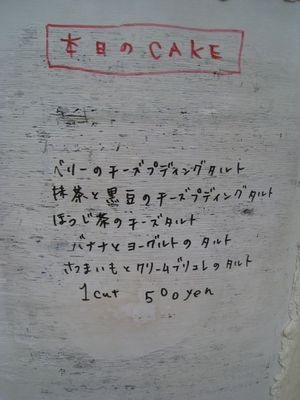 本日のCAKE
ベリーのチーズプディングタルト
抹茶と黒豆のチーズプディングタルト
ほうじ茶のチーズタルト
バナナとヨーグルトのタルト
さつまいもとクリームブリュレのタルト
1cut 500yen